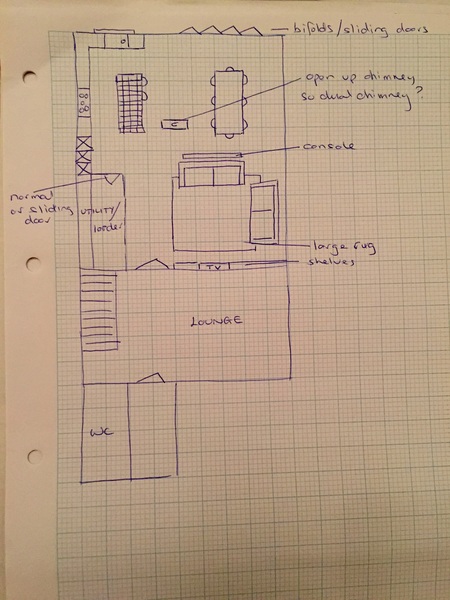 bifolds/sliding doors
open up chimney,
so dual chimney?
C
console
normal
or sliding
door
UTILITY/
larder
large rug
shelves
TV
LOUNGE
WC